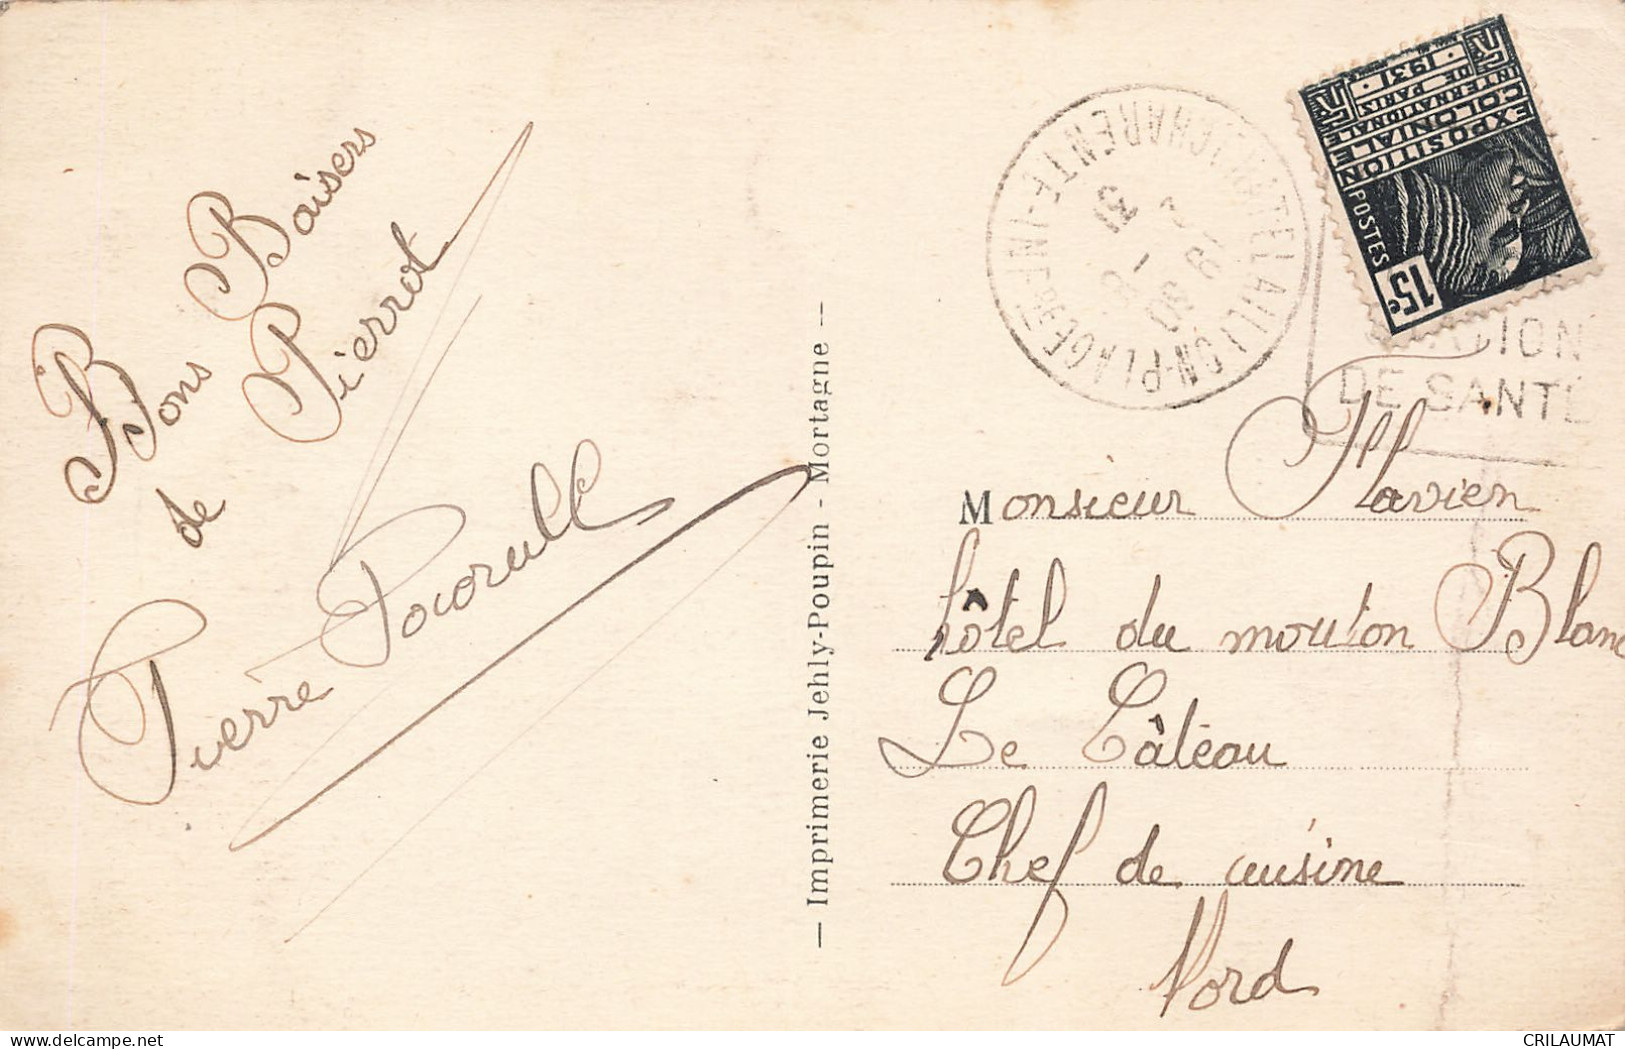 Bons Baisers
de Pierrot
Pierre
— Imprimerie Jehly-Poupin - Mortagne —
CHATELAILLON-PLAGE
CHARENTE-INFRE
31
EXPOSITION
COLONIALE
INTERNATIONALE
DE PARIS
1931
POSTES
15c
STATION
DE SANTÉ
Monsieur Flavien
hôtel du mouton Blanc
Le Câteau
Chef de cuisine
Nord
CRILAUMAT